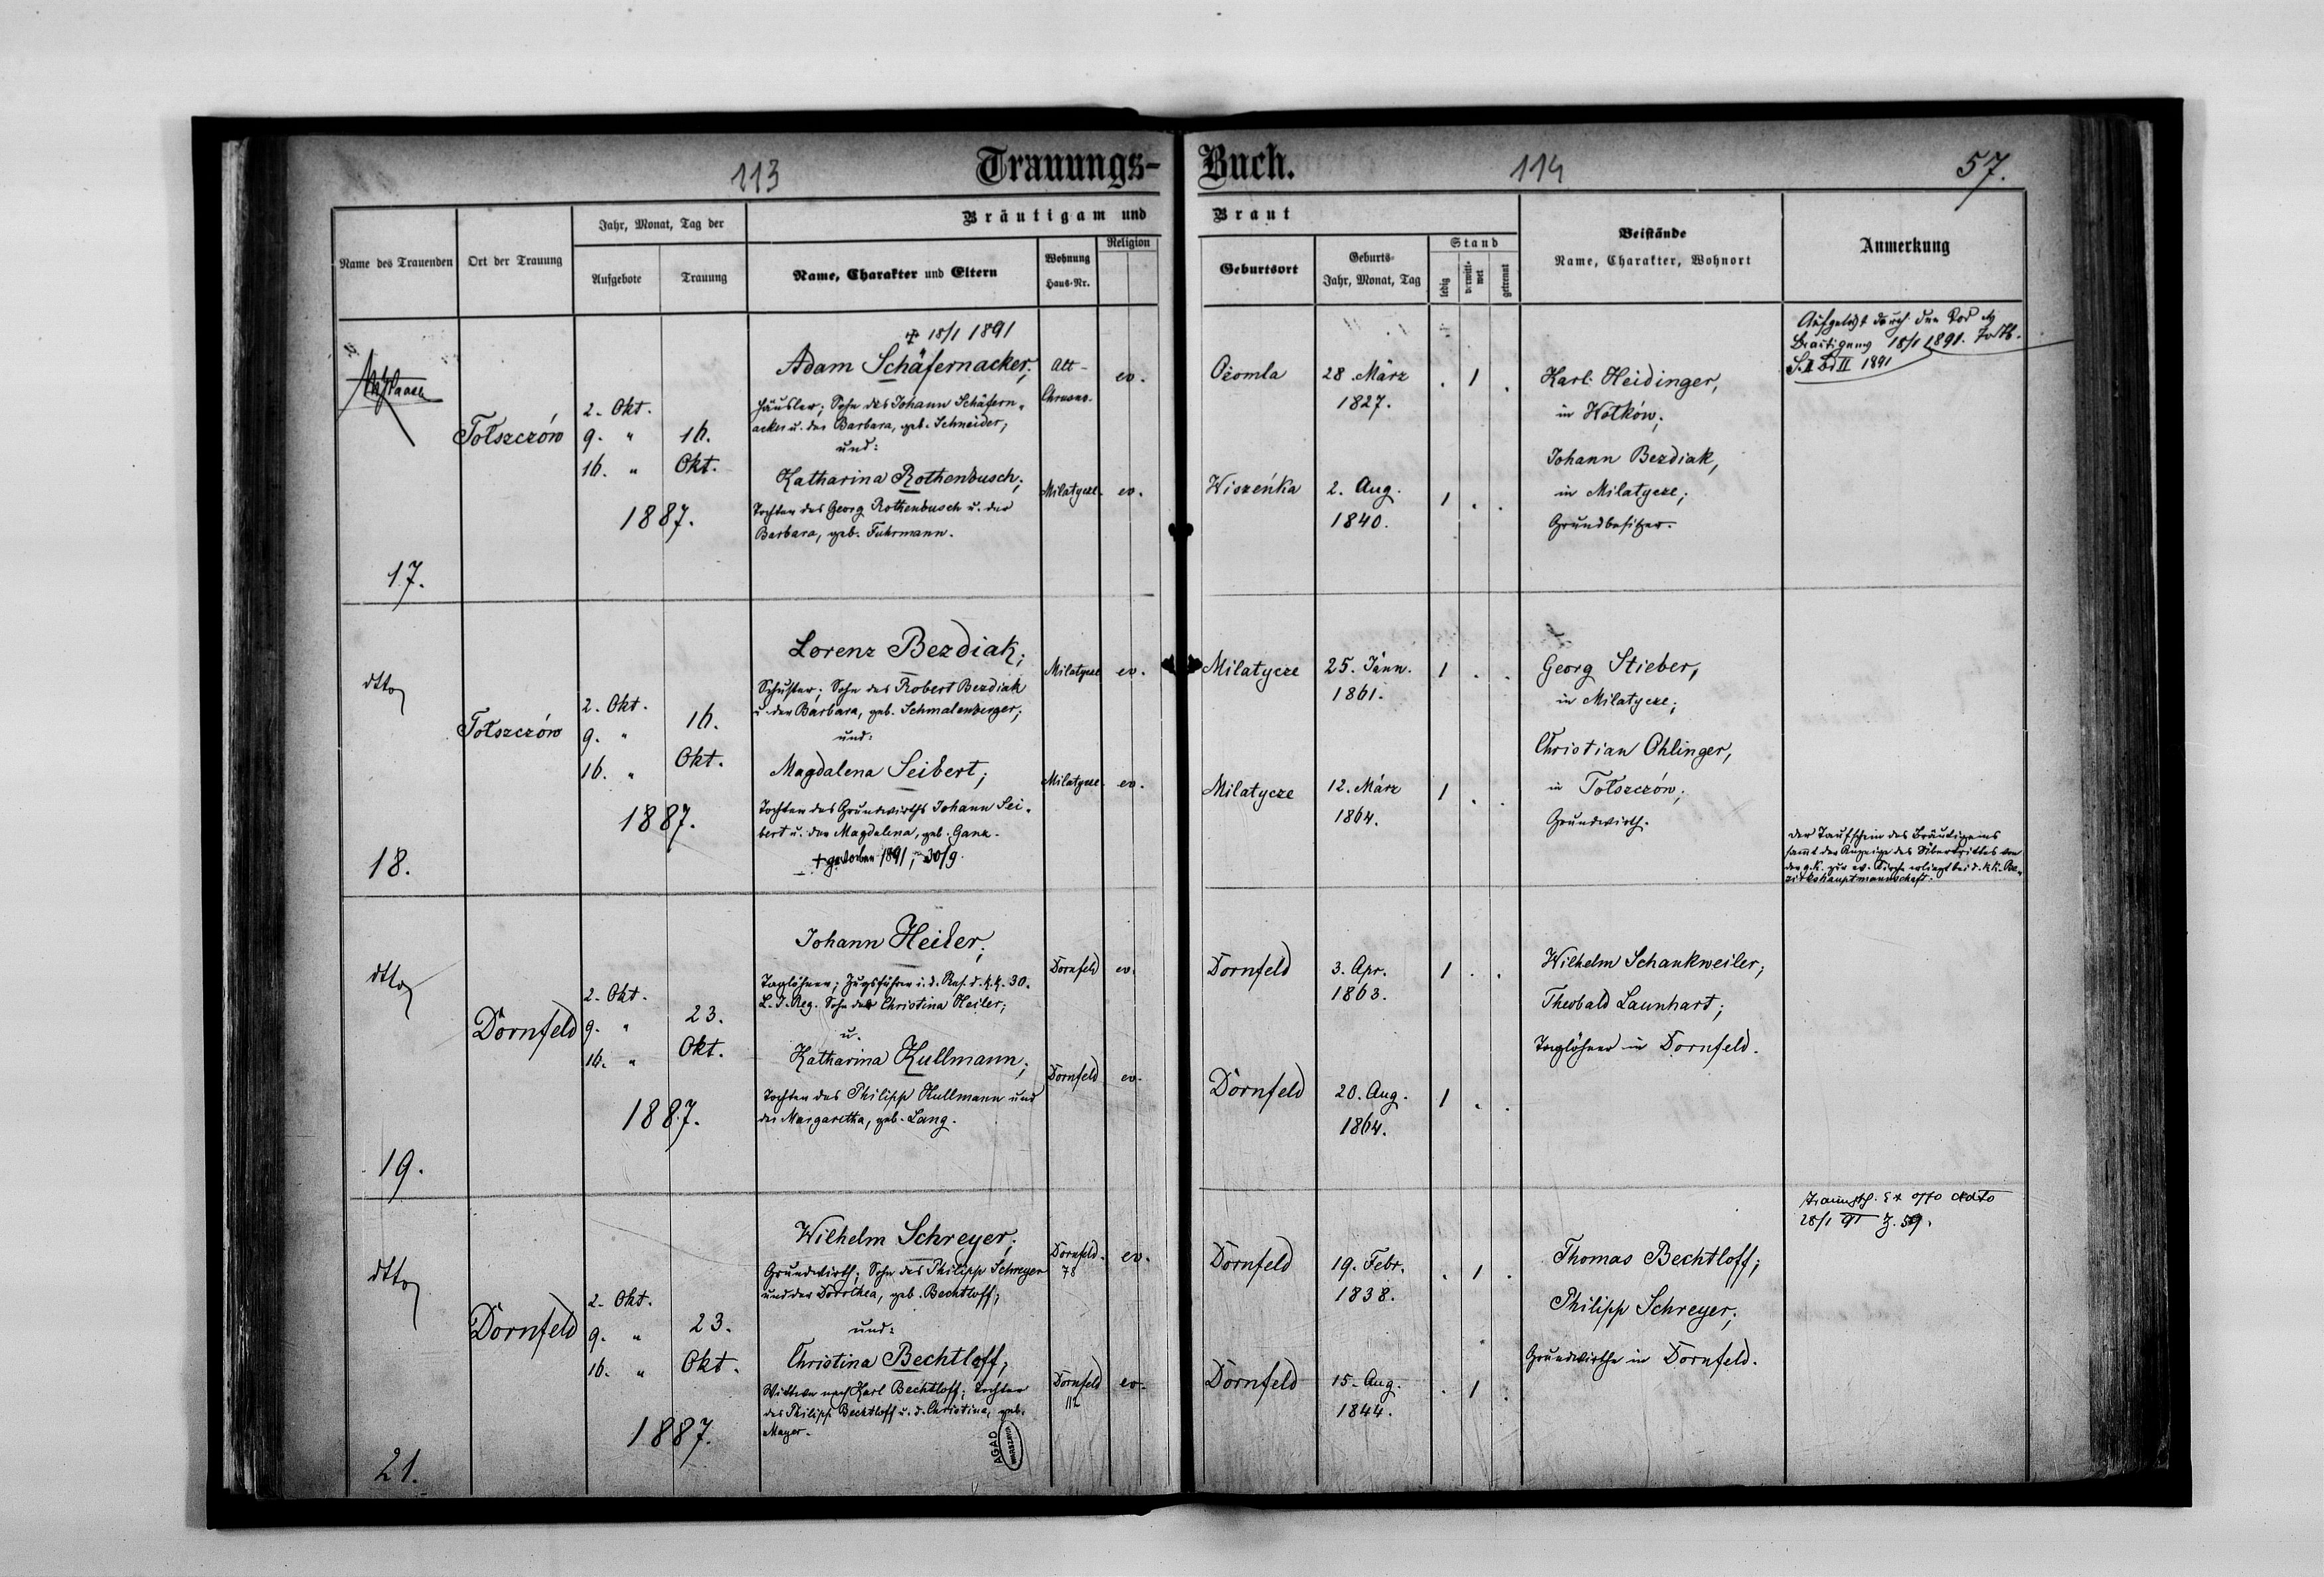 113
Trauungs-
Buch.
114
57.
Name des Trauenden
Ort der Trauung
Jahr, Monat, Tag der
Aufgebote
Trauung
Bräutigam und
Name, Charakter und Eltern
Wohnung
Haus-Nr.
Religion
Braut
Geburtsort
Geburts-
Jahr, Monat, Tag
Stand
ledig
verwitt-
wet
getrennt
Beistände
Name, Charakter, Wohnort
Anmerkung
17.
Tołszczów
2. Okt.
9. "
16. "
16.
Okt.
1887.
18/1 1891
Adam Schäfernacker;
Häusler; Sohn des Johann Schäfern-
acker u. der Barbara, geb. Schneider;
und:
Katharina Rothenbusch;
Tochter des Georg Rothenbusch u. der
Barbara, geb. Fuhrmann.
Alt-
Chrusno.
ev.
Milatycze.
ev.
Ożomla
28. März
1827.
. 1 .
Wiszeńka
2. Aug.
1840.
1 . .
Karl Heidinger,
in Wołków;
Johann Bezdiak,
in Milatycze;
Grundbesitzer.
Aufgelöst durch den Tod des
Bräutigams 18/1 1891.
Bd II 1891
18.
dtto
Tołszczów
2. Okt.
9. "
16. "
16.
Okt.
1887.
Lorenz Bezdiak;
Schuster; Sohn des Robert Bezdiak
u. der Barbara, geb. Schmalenberger;
und:
Magdalena Seibert;
Tochter des Grundwirths Johann Sei-
bert u. der Magdalena, geb. Ganz.
+ gestorben 1891, 30/9.
Milatycze
ev.
Milatycze.
ev.
Milatycze
25. Jänn.
1861.
1 . .
Milatycze
12. März
1864.
1 . .
Georg Stieber,
in Milatycze;
Christian Ohlinger,
in Tołszczów;
Grundwirth.
Der Taufschein des Bräutigams
sammt der Anzeige des Übertrittes von
der g.k. zur ev. Kirche erliegt bei d. k.k. Be-
zirkshauptmannschaft.
19.
dtto
Dornfeld
2. Okt.
9. "
16. "
23.
Okt.
1887.
Johann Heiler;
Taglöhner; Zugsführer i. d. Res. d. k.k. 30.
L. I. Reg. Sohn der Christina Heiler;
u.
Katharina Kullmann;
Tochter des Philipp Kullmann und
der Margaretha, geb. Lang.
Dornfeld
ev.
Dornfeld
ev.
Dornfeld
3. Apr.
1863.
1 . .
Dornfeld
20. Aug.
1864.
1 . .
Wilhelm Schankweiler;
Theobald Launhart;
Taglöhner in Dornfeld.
21.
dtto
Dornfeld
2. Okt.
9. "
16. "
23.
Okt.
1887.
Wilhelm Schreyer;
Grundwirth; Sohn des Philipp Schreyer
und der Dorothea, geb. Bechtloff;
und:
Christina Bechtloff;
Wittwe nach Karl Bechtloff; Tochter
des Philipp Bechtloff u. d. Christina, geb.
Mayer.
Dornfeld.
78
ev.
Dornfeld
112
ev.
Dornfeld
19. Febr.
1838.
. 1 .
Dornfeld
15. Aug.
1844.
. 1 .
Thomas Bechtloff;
Philipp Schreyer;
Grundwirthe in Dornfeld.
Trauungssch. Ex offo ddto
28/1 91 Z. 59.
AGAD
WARSZAWA